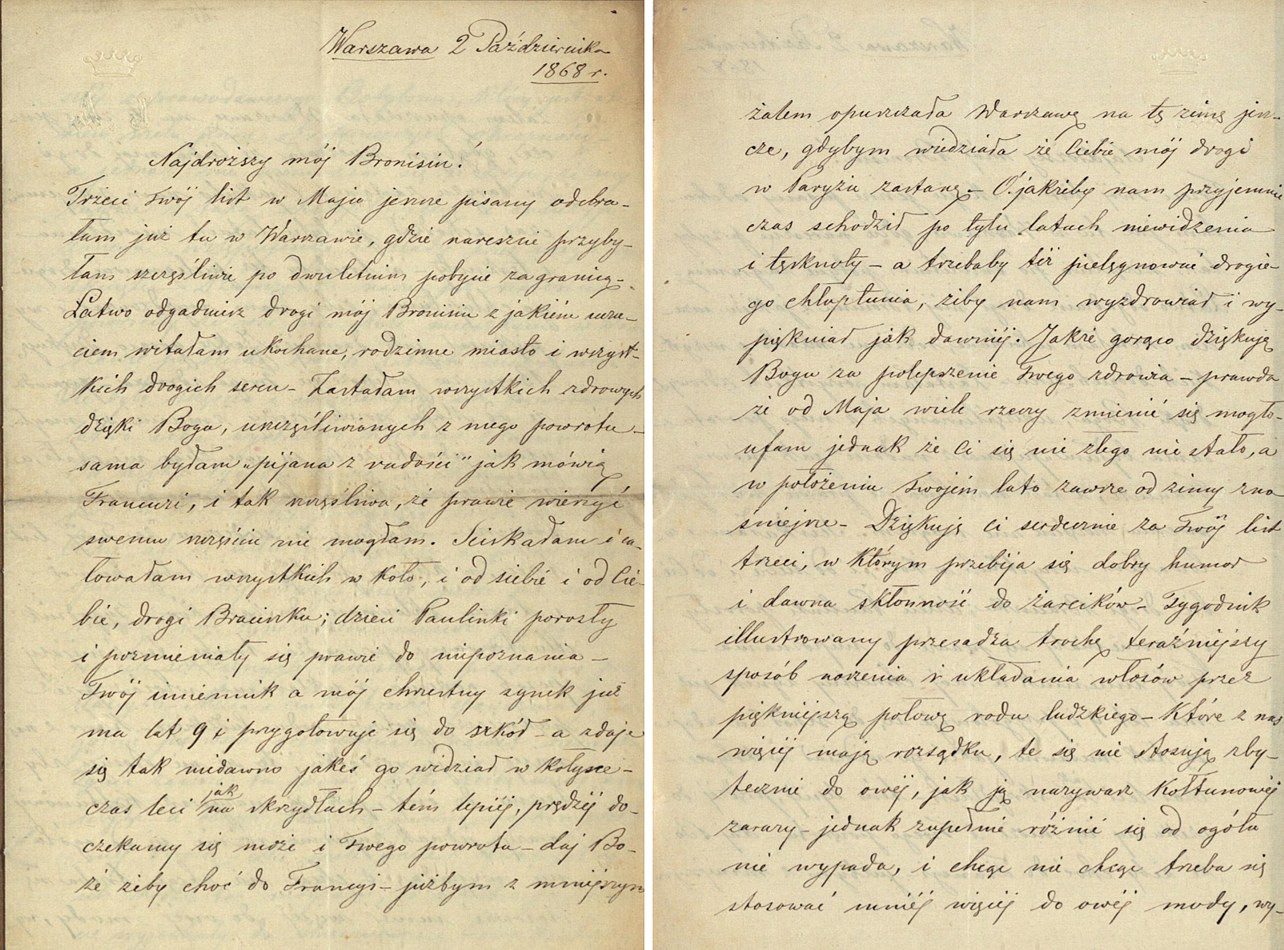 Warszawa 2 Października
1868 r.
Najdroższy mój Bronisiu!
Trzeci Twój list w Maju jeszcze pisany odebra-
łam już tu w Warszawie, gdzie nareszcie przyby-
łam szczęśliwie po dwuletnim pobycie za granicą.
Łatwo odgadniesz drogi mój Bronisiu z jakiém uczu-
ciem witałam ukochane, rodzinne miasto i wszyst-
kich drogich sercu – Zastałam wszystkich zdrowych
dzięki Boga, uszczęśliwionych z mego powrotu –
sama byłam „pijana z radości” jak mówią
Francuzi, i tak szczęśliwa, że prawie wierzyć
swemu szczęściu nie mogłam. Ściskałam i ca-
łowałam wszystkich w koło, i od siebie i od Cie-
bie, drogi Braciszku; dzieci Paulinki porosły
i pozmieniały się prawie do niepoznania –
Twój imiennik a mój chrzestny synek już
ma lat 9 i przygotowuje się do szkół – a zdaje
się tak niedawno jakeś go widział w kołysce –
czas leci jak na skrzydłach – tém lepiéj, prędzéj do-
czekamy się może i Twego powrotu – daj Bo-
że żeby choć do Francyi – jużbym z mniejszym
żalem opuszczała Warszawę na tę zimę jesz-
cze, gdybym wiedziała że Ciebie mój drogi
w Paryżu zastanę – O! jakżeby nam przyjemnie
czas schodził po tylu latach niewidzenia
i tęsknoty – a trzebaby téż pielęgnować drogie-
go chłoptunia, żeby nam wyzdrowiał i wy-
piękniał jak dawniéj. Jakże gorąco dziękuję
Bogu za polepszenie Twego zdrowia – prawda
że od Maja wiele rzeczy zmienić się mogło
ufam jednak że Ci się nic złego nie stało, a
w położeniu Twojém lato zawsze od zimy zno-
śniejsze – Dziękuję Ci serdecznie za Twój list
trzeci, w którym przebija się dobry humor
i dawna skłonność do żarcików – Tygodnik
illustrowany przesadza trochę teraźniejszy
sposób noszenia i układania włosów przez
piękniejszą połowę rodu ludzkiego – Które z nas
więcéj mają rozsądku, te się nie stosują zby-
tecznie do owéj, jak ją nazywasz Kołtunowéj
zarazy – jednak zupełnie różnić się od ogółu
nie wypada, i chcąc nie chcąc trzeba się
stosować mniéj więcéj do owéj mody, wy-